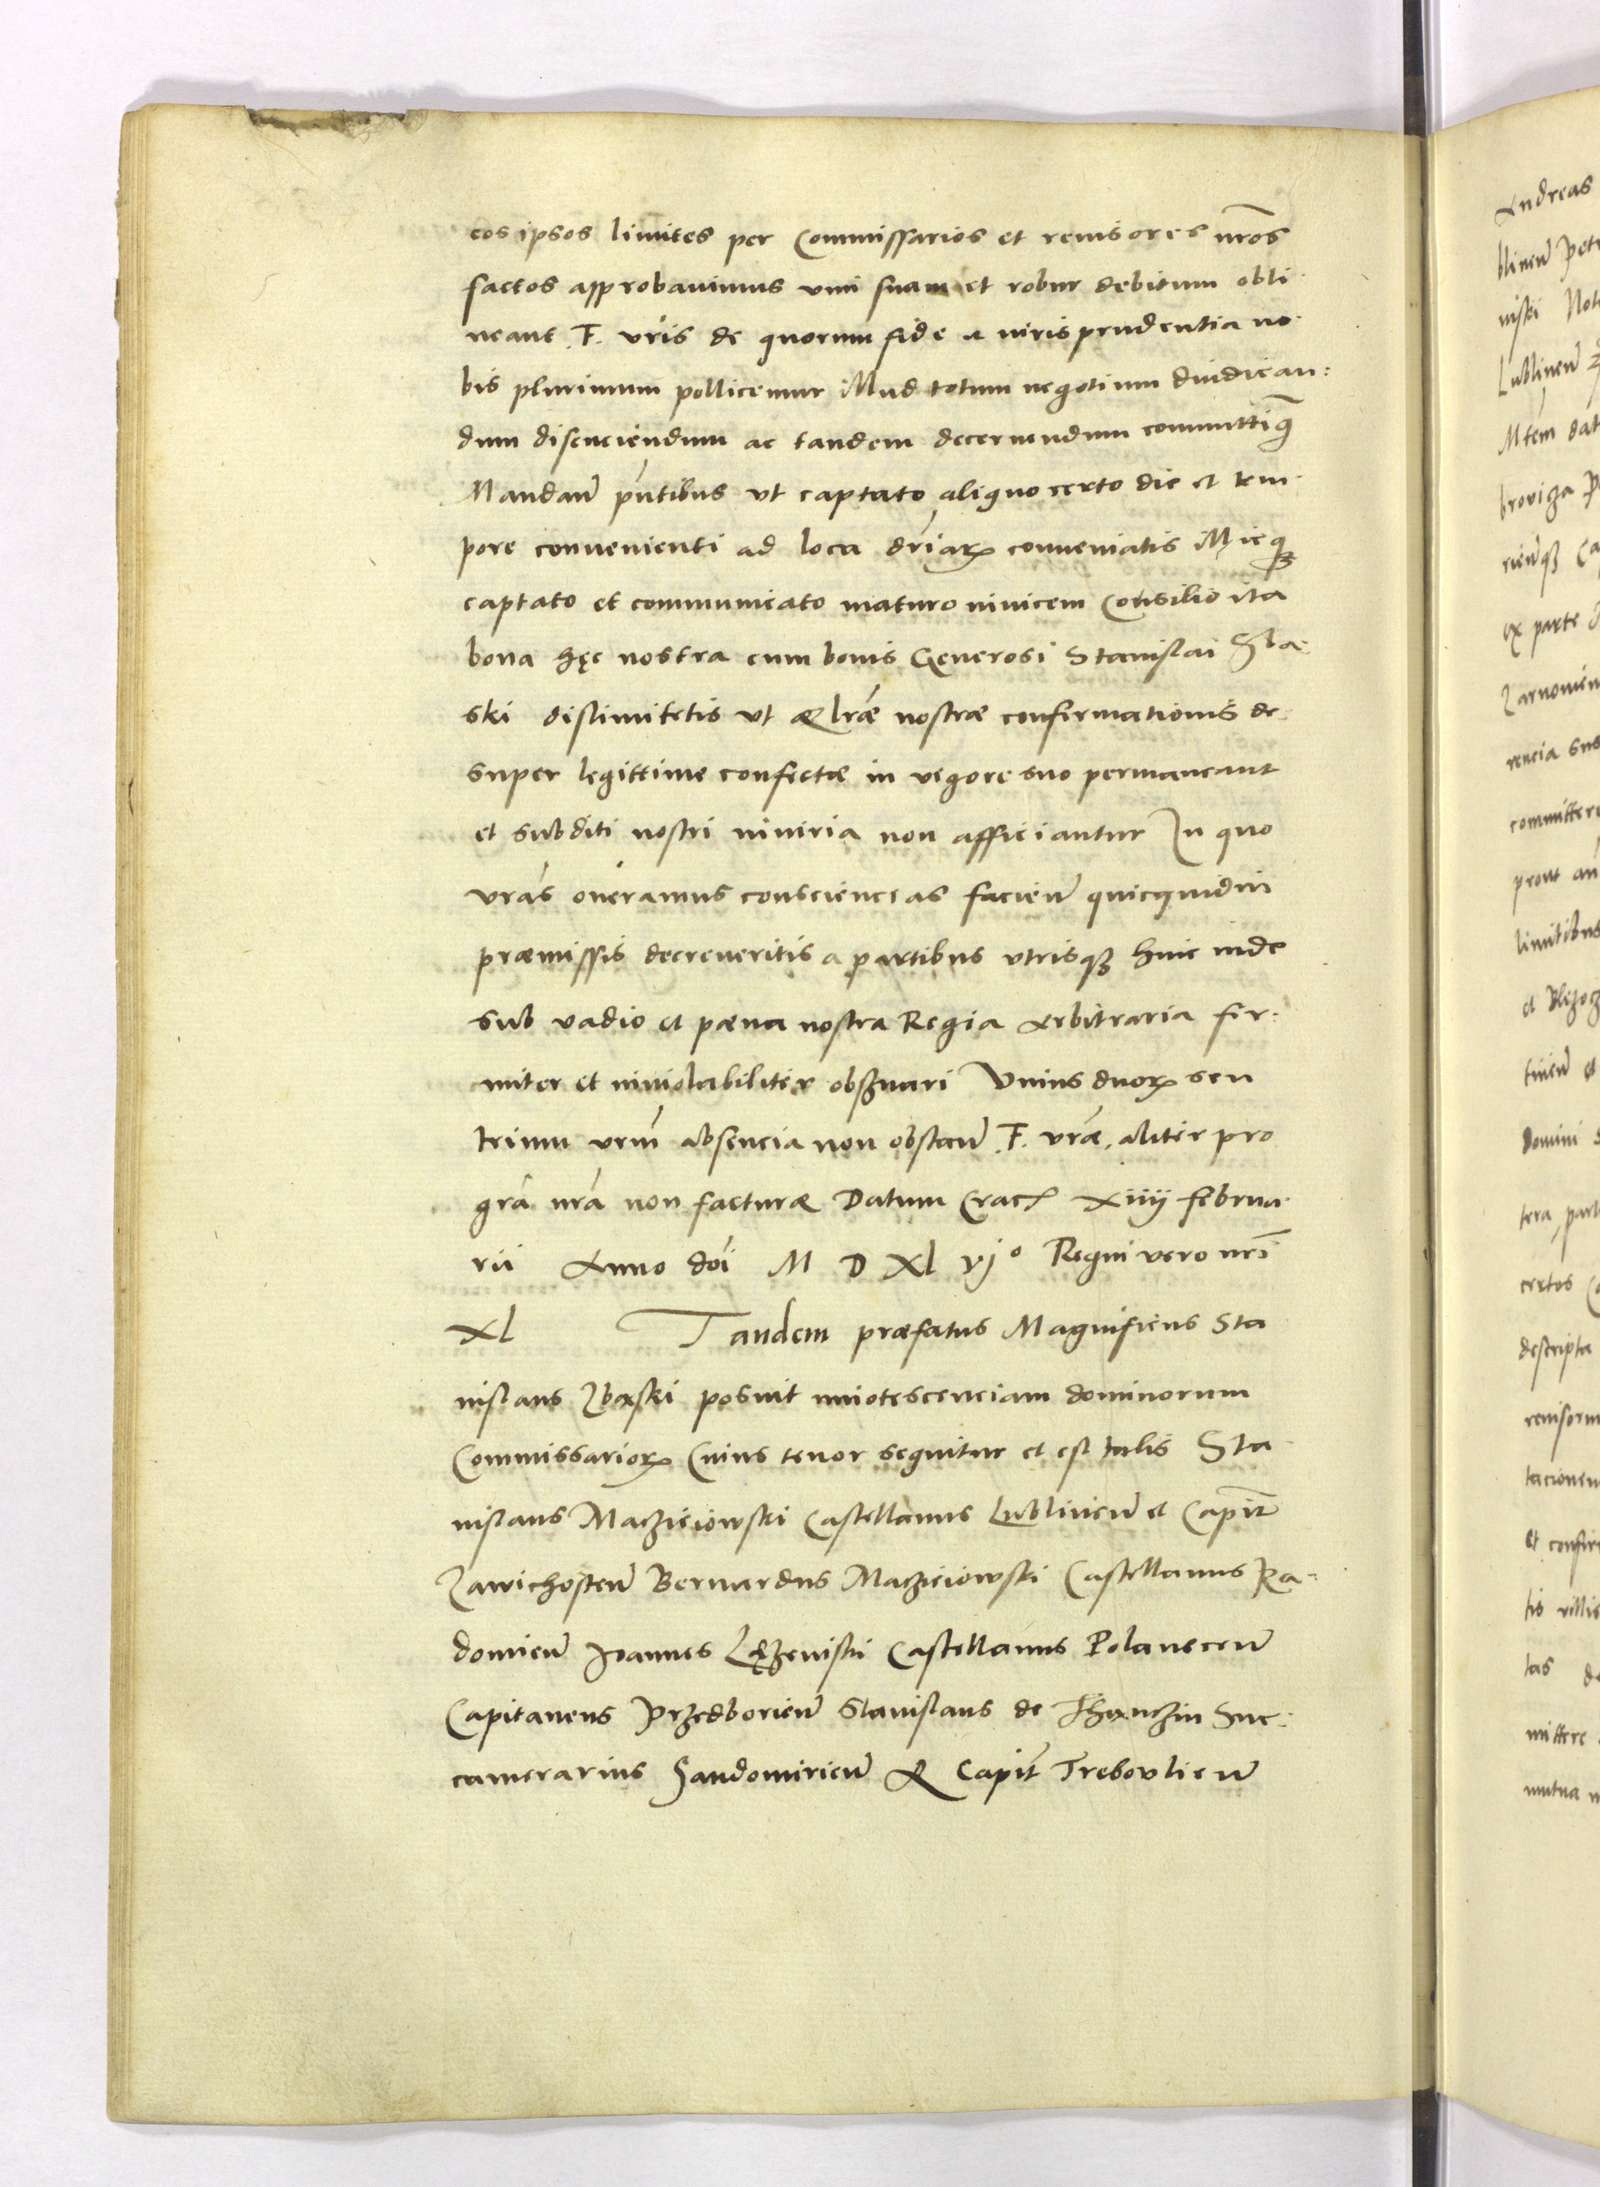 eos ipsos limites per Commissarios et reuisores nr̃os
factos approbauimus vim suam et robur debitum obti
neant F. vr̃is de quorum fide a iuris prudentia no
bis plurimum pollicemur Illud totum negotium diiudican:
dum discuciendum ac tandem decernendum committim9
Mandan̄ pn̄tibus vt captato aliquo certo die et tem
pore conuenienti ad loca dr̃iarꝝ conueniatis Illicqꝫ
captato et communicato maturo inuicem Consilio ita
bona hęc nostra cum bonis Generosi Stanislai Zba:
ski distimitetis vt & lr̃æ nostræ confirmationis de
super legittime confectæ in vigore suo permaneant
et subditi nostri iniuria non afficiantur In quo
vr̃as oneramus consciencias facien̄ quicquid in
præmissis decreueritis a partibus vtrisqꝫ hinc inde
sub vadio et pæna nostra Regia Arbitraria fir:
miter et inuiolabiliter obseruari Vnius duorꝝ seu
trium vrm̃ absencia non obstan̄ F. vr̃æ, aliter pro
gr̃a nr̃a non facturæ Datum Crac̄ xiiij februa
rii Anno doi M D xl vjº Regni vero nr̃i
xl Tandem præfatus Magnificus Sta
nislaus Zbąski posuit innotescenciam dominorum
Commissariorꝝ Cuius tenor sequitur et est talis Sta
nislaus Maczieiowski Castellanus Lublinen̄ et Capit̄
Zawichosten̄ Bernardus Maczieiowski Castellanus Ra=
domien̄ Joannes Lężenski Castellanus Polanecen̄
Capitaneus Przedborien̄ Stanislaus de Thanczin Suc:
camerarius Sandomirien̄ & Capit̄ Trebovlien̄
Andreas
blinen̄ Pet
niski Not
Lublinen̄
Mt̃em dat
brovicza
rien̄qꝫ Ca
ex parte
Zarnovien
rencia sus
committere
prout an
limitibus
et
tinen̄ et
domini
tera part
certos
descripta
reuisorum
tacionem
et confir
tis villis
tas de
mittere
mutua